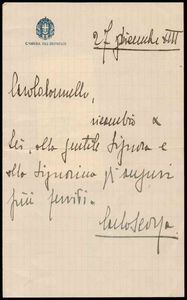 CAMERA DEI DEPUTATI
27 dicembre XIII
Caro Colonnello,
ricambio a
Lei, alla gentile Signora e
alla Signorina gli auguri
più fervidi.
Carlo Scorza